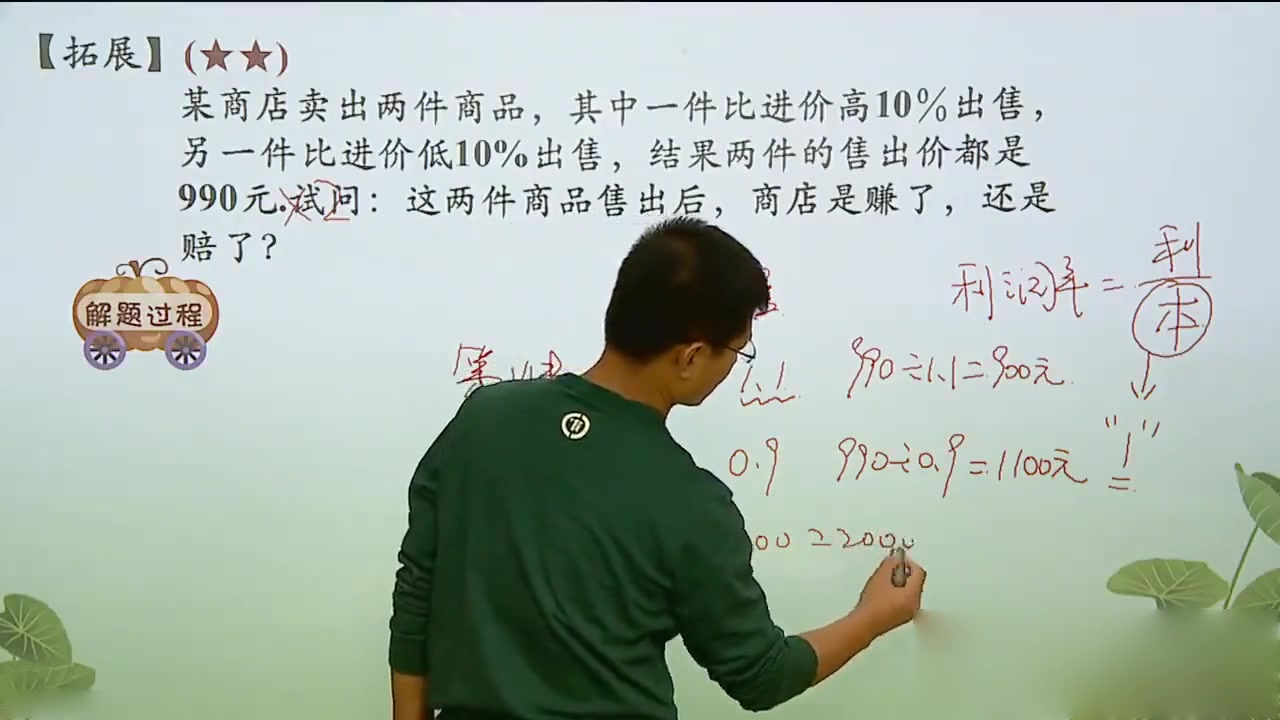 【拓展】(★★)
某商店卖出两件商品，其中一件比进价高10%出售，
另一件比进价低10%出售，结果两件的售出价都是
990元.试问：这两件商品售出后，商店是赚了，还是
赔了？
解题过程
利润率=利/本
1.1 990÷1.1=900元
0.9 990÷0.9=1100元 "1"
=2000